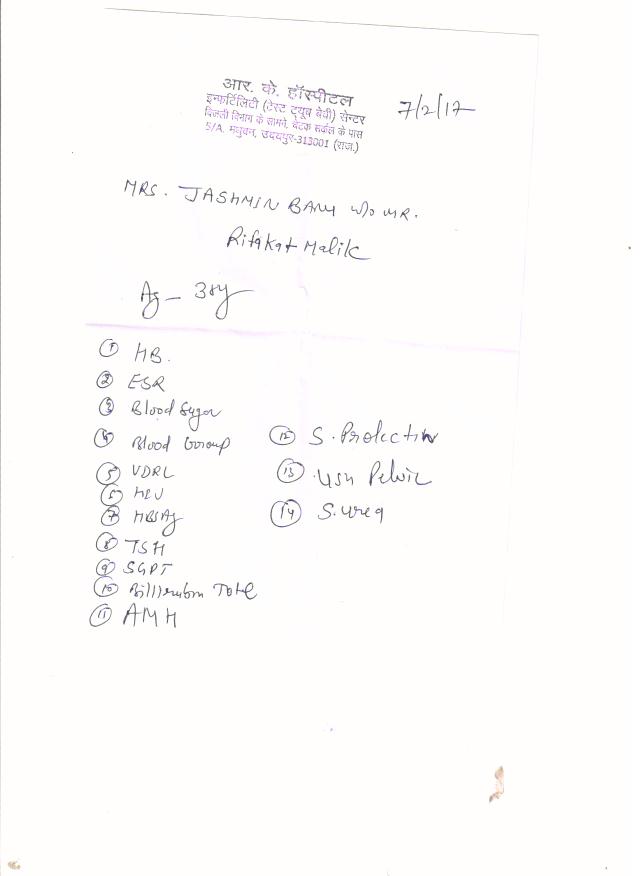 आर. के. हॉस्पीटल
इन्फर्टिलिटी (टेस्ट ट्यूब बेबी) सेन्टर
बिजली विभाग के सामने, बेदक सर्कल के पास
5/A, मधुवन, उदयपुर-313001 (राज.)
7/2/17
MRS. JASHMIN BANU W/o MR.
Rifakat Malik
Ag - 38y
① HB.
② ESR
③ Blood Sugar
④ Blood Goroup
⑤ VDRL
⑥ HIV
⑦ HBSAg
⑧ TSH
⑨ SGPT
⑩ Billlerubm Totel
⑪ AMH
⑫ S. Prolectin
⑬ USH Pelvic
⑭ S. urea